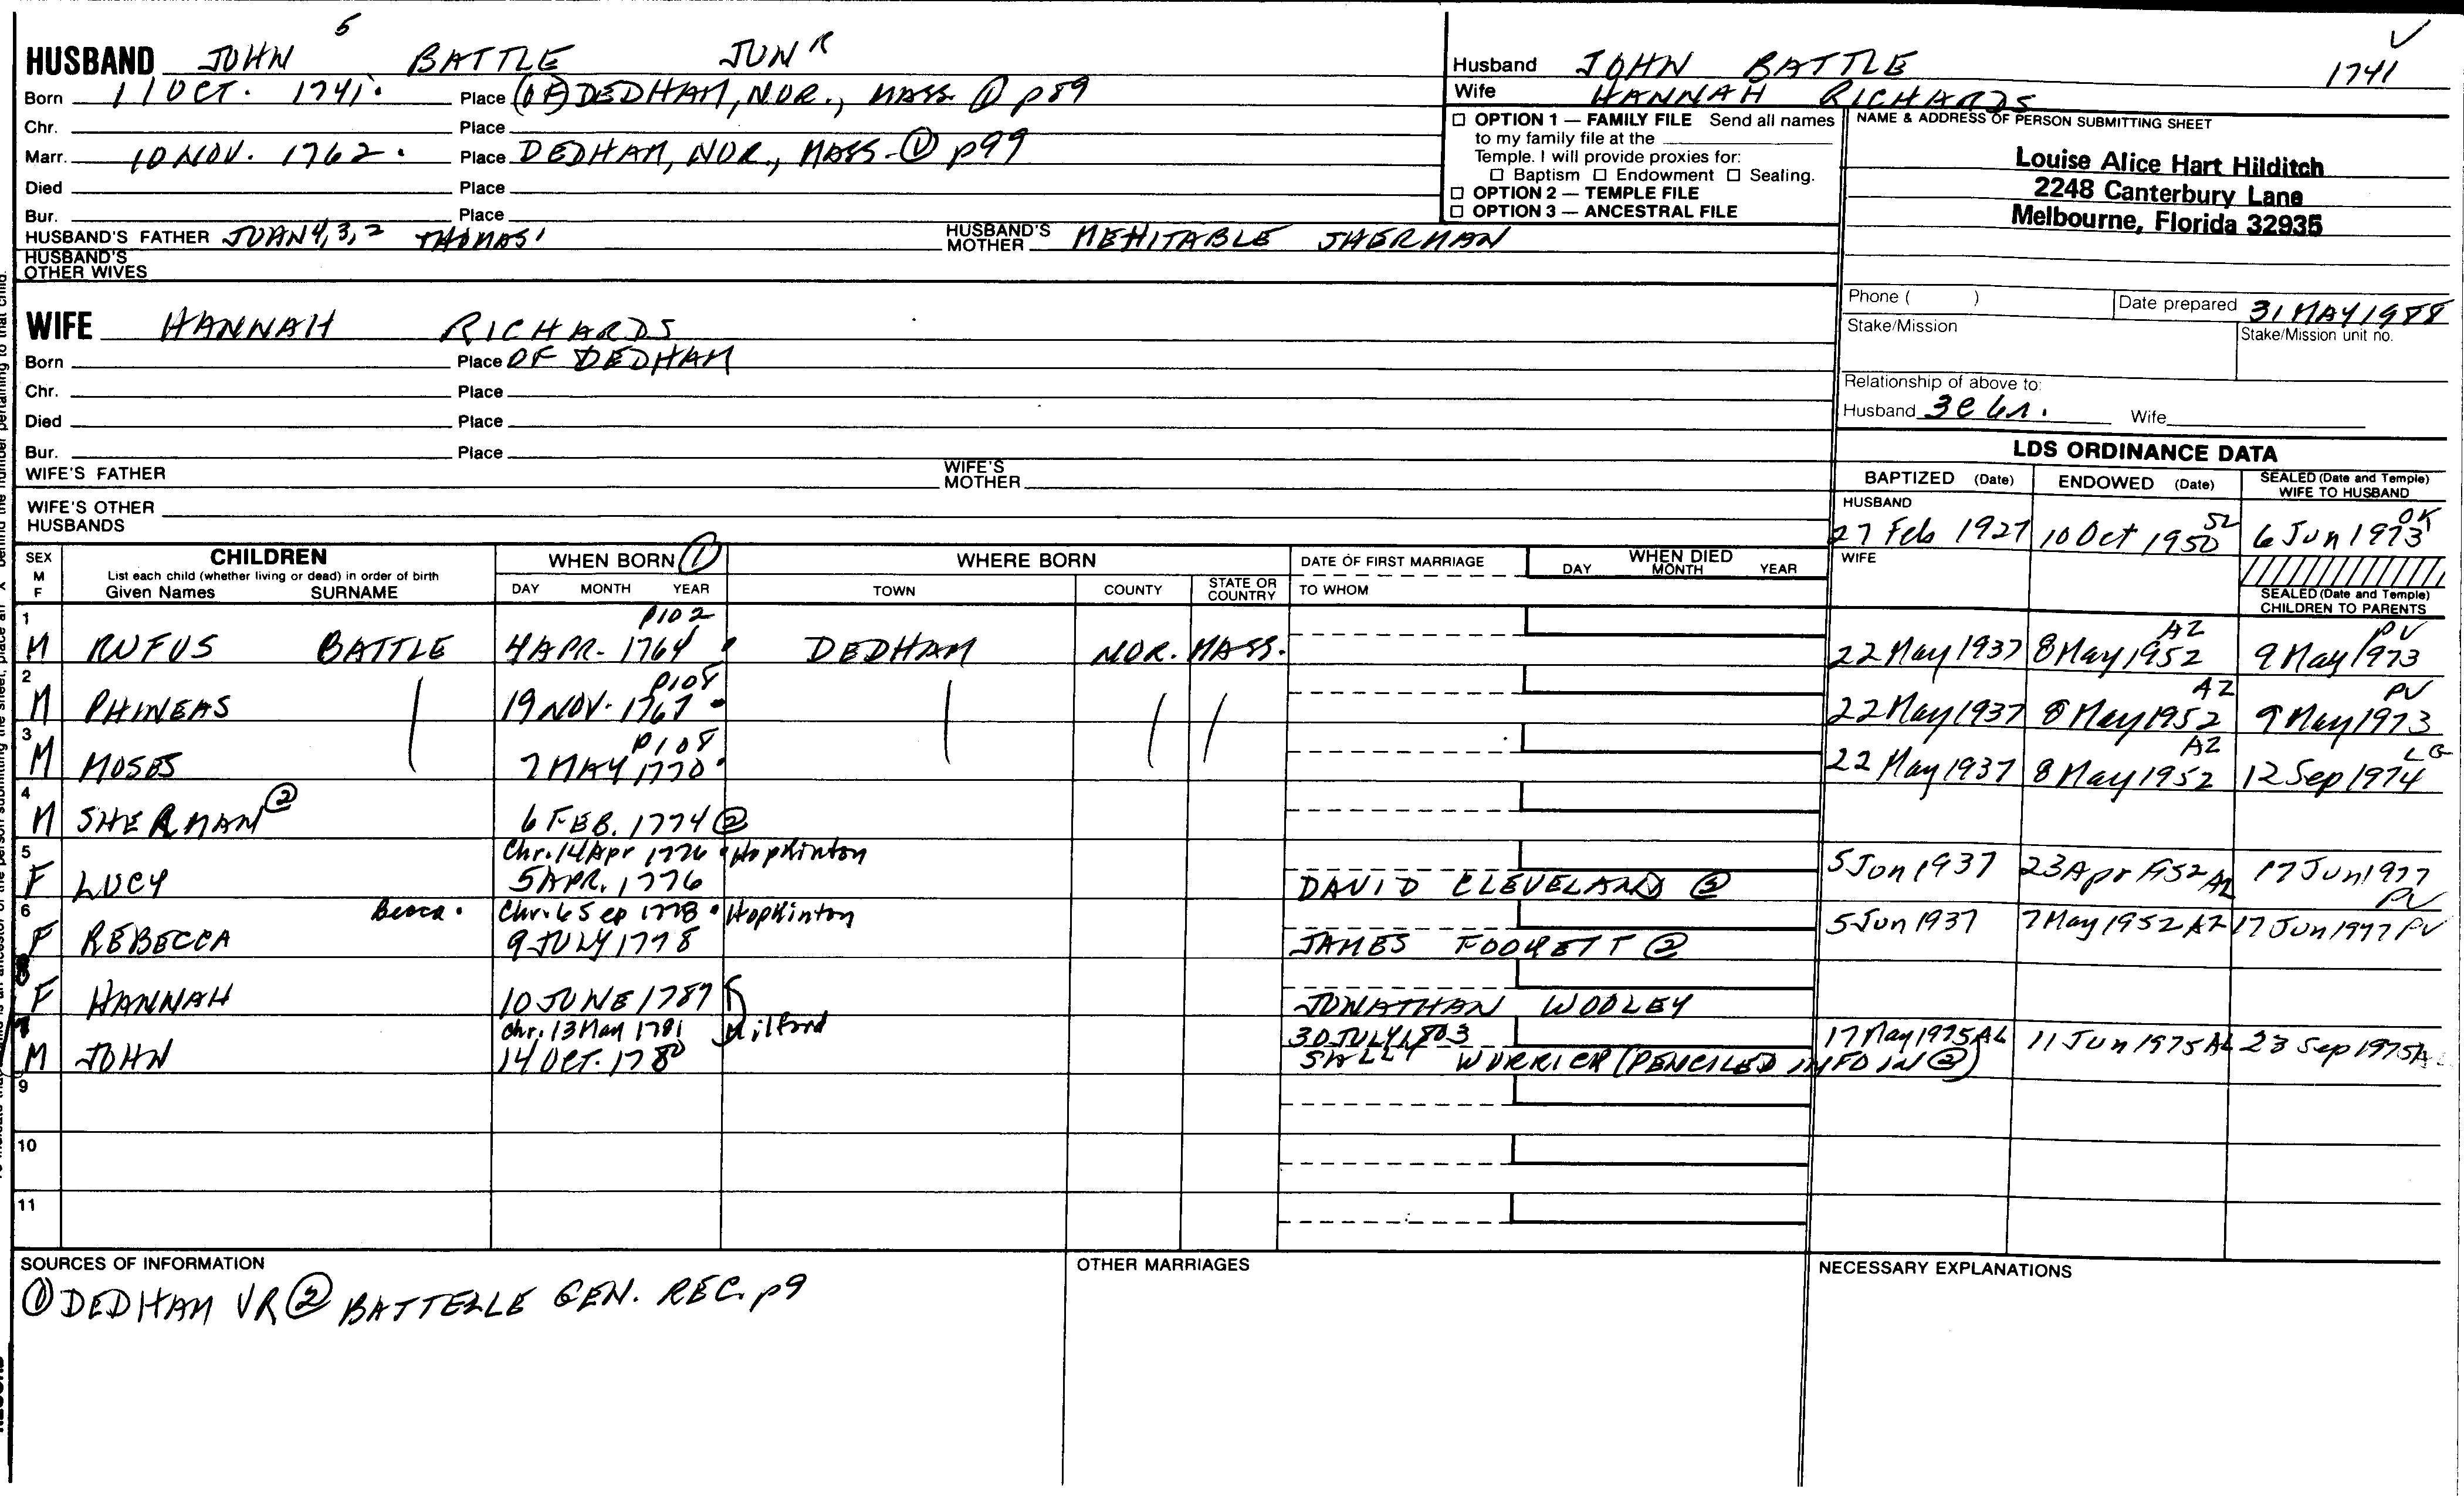 5
HUSBAND JOHN BATTLE JUN R
Born 11 OCT. 1741. Place (OF) DEDHAM, NOR., MASS. ① p89
Chr. Place
Marr. 10 NOV. 1762. Place DEDHAM, NOR., MASS - ① p99
Died Place
Bur. Place
HUSBAND'S FATHER JOHN 4,3,2 THOMAS 1 HUSBAND'S MOTHER MEHITABLE SHERMAN
HUSBAND'S OTHER WIVES
WIFE HANNAH RICHARDS
Born Place OF DEDHAM
Chr. Place
Died Place
Bur. Place
WIFE'S FATHER WIFE'S MOTHER
WIFE'S OTHER HUSBANDS
Husband JOHN BATTLE 1741
Wife HANNAH RICHARDS
☐ OPTION 1 — FAMILY FILE Send all names
to my family file at the
Temple. I will provide proxies for:
☐ Baptism ☐ Endowment ☐ Sealing.
☐ OPTION 2 — TEMPLE FILE
☐ OPTION 3 — ANCESTRAL FILE
NAME & ADDRESS OF PERSON SUBMITTING SHEET
Louise Alice Hart Hilditch
2248 Canterbury Lane
Melbourne, Florida 32935
Phone ( ) Date prepared 31 MAY 1988
Stake/Mission Stake/Mission unit no.
Relationship of above to:
Husband Wife
LDS ORDINANCE DATA
BAPTIZED (Date) ENDOWED (Date) SEALED (Date and Temple) WIFE TO HUSBAND
HUSBAND
27 Feb 1927 10 Oct 1950 SL 6 Jun 1973 OK
WIFE
SEALED (Date and Temple) CHILDREN TO PARENTS
SEX M F CHILDREN WHEN BORN ① WHERE BORN DATE OF FIRST MARRIAGE WHEN DIED
List each child (whether living or dead) in order of birth
Given Names SURNAME DAY MONTH YEAR TOWN COUNTY STATE OR COUNTRY TO WHOM DAY MONTH YEAR
1 p102
M RUFUS BATTLE 4 APR. 1764 DEDHAM NOR. MASS. 22 May 1937 8 May 1952 AZ 9 May 1973 PV
2 p108
M PHINEAS 19 NOV. 1767 22 May 1937 8 May 1952 AZ 9 May 1973 PV
3 p108
M MOSES 7 MAY 1770 22 May 1937 8 May 1952 AZ 12 Sep 1974 LG
4
M SHERMAN ② 6 FEB. 1774 ②
5 Chr. 14 Apr 1776 Hopkinton
F LUCY 5 APR. 1776 DAVID CLEVELAND ② 5 Jun 1937 23 Apr 1952 AZ 17 Jun 1977 PV
6 Becca. Chr. 6 Sep 1778 Hopkinton
F REBECCA 9 JULY 1778 JAMES ② 5 Jun 1937 7 May 1952 AZ 17 Jun 1977 PV
8
F HANNAH 10 JUNE 1787 JONATHAN WOOLEY
7 Chr. 13 May 1781 Milford 30 JULY 1803
M JOHN 14 OCT. 1780 SALLY (PENCILED INFO IN ②) 17 May 1975 AL 11 Jun 1975 AL 23 Sep 1975 A
9
10
11
SOURCES OF INFORMATION
① DEDHAM VR ② BATTELLE GEN. REC. p9
OTHER MARRIAGES
NECESSARY EXPLANATIONS